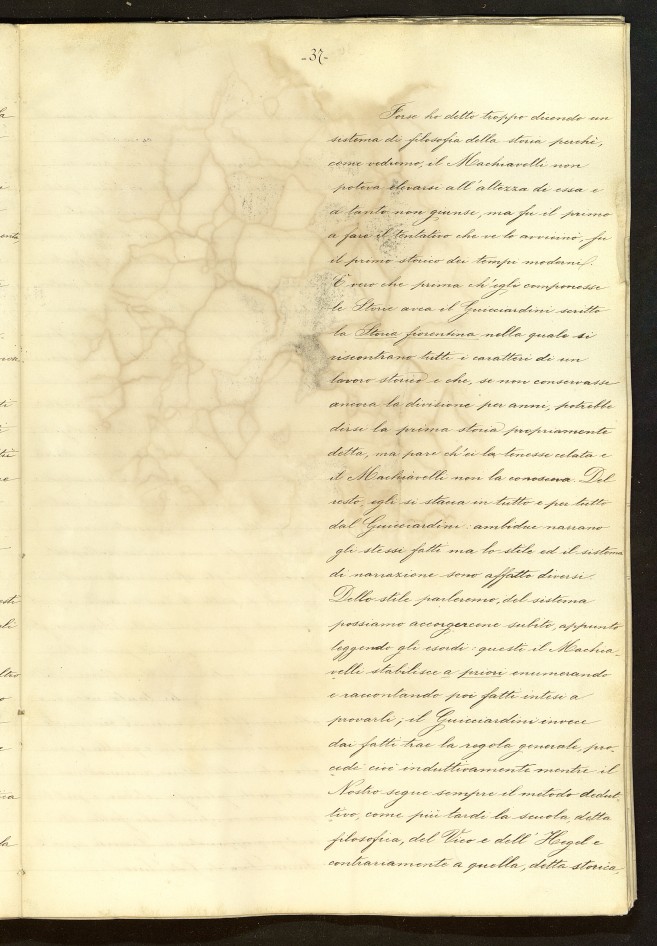 -37-
Forse ho detto troppo dicendo un
sistema di filosofia della storia perchè,
come vedremo, il Machiavelli non
poteva elevarsi all'altezza di essa e
a tanto non giunse, ma fu il primo
a fare il tentativo che ve lo avvicinò, fu
il primo storico dei tempi moderni.
È vero che prima ch'egli componesse
le Storie avea il Guicciardini scritto
la Storia fiorentina nella quale si
riscontrano tutti i caratteri di un
lavoro storico e che, se non conservasse
ancora la divisione per anni, potrebbe
dirsi la prima storia propriamente
detta, ma pare ch'ei la tenesse celata e
il Machiavelli non la conosceva. Del
resto, egli si stacca in tutto e per tutto
dal Guicciardini: ambidue narrano
gli stessi fatti ma lo stile ed il sistema
di narrazione sono affatto diversi.
Dello stile parleremo, del sistema
possiamo accorgercene subito, appunto
leggendo gli esordi: questi il Machia-
velli stabilisce a priori enumerando
e raccontando poi fatti intesi a
provarli; il Guicciardini invece
dai fatti trae la regola generale, pro-
cede cioè induttivamente mentre il
Nostro segue sempre il metodo dedut-
tivo, come più tardi la scuola, detta
filosofica, del Vico e dell'Hegel e
contrariamente a quella, detta storica,